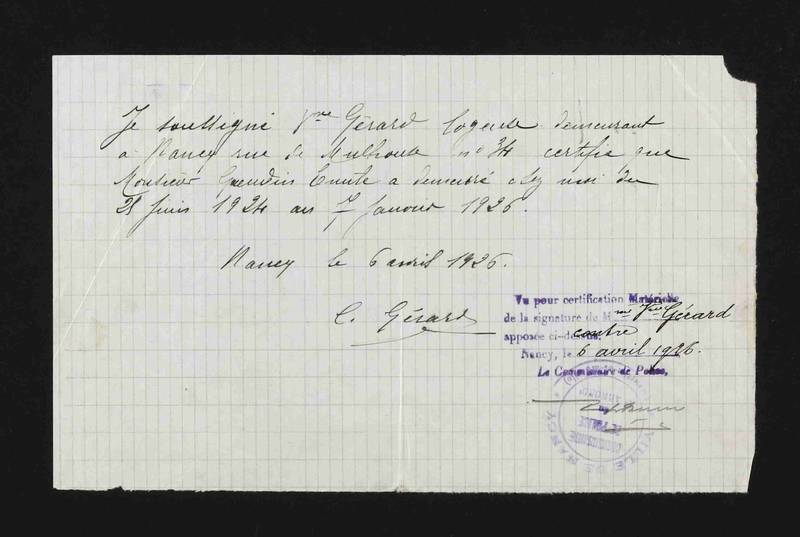 Je soussigné Vve Gérard logeuse demeurant
à Nancy rue de Mulhouse no 34 certifie que
Monsieur Emile a demeuré chez moi du
28 juin 1924 au 7 Janvier 1926.
Nancy le 6 avril 1926.
C. Gérard
Vu pour certification Matérielle
de la signature de Mme Vve Gérard
apposée ci-contre
Nancy, le 6 avril 1926.
Le Commissaire de Police,
VILLE DE NANCY
COMMISSAIRE
DE POLICE